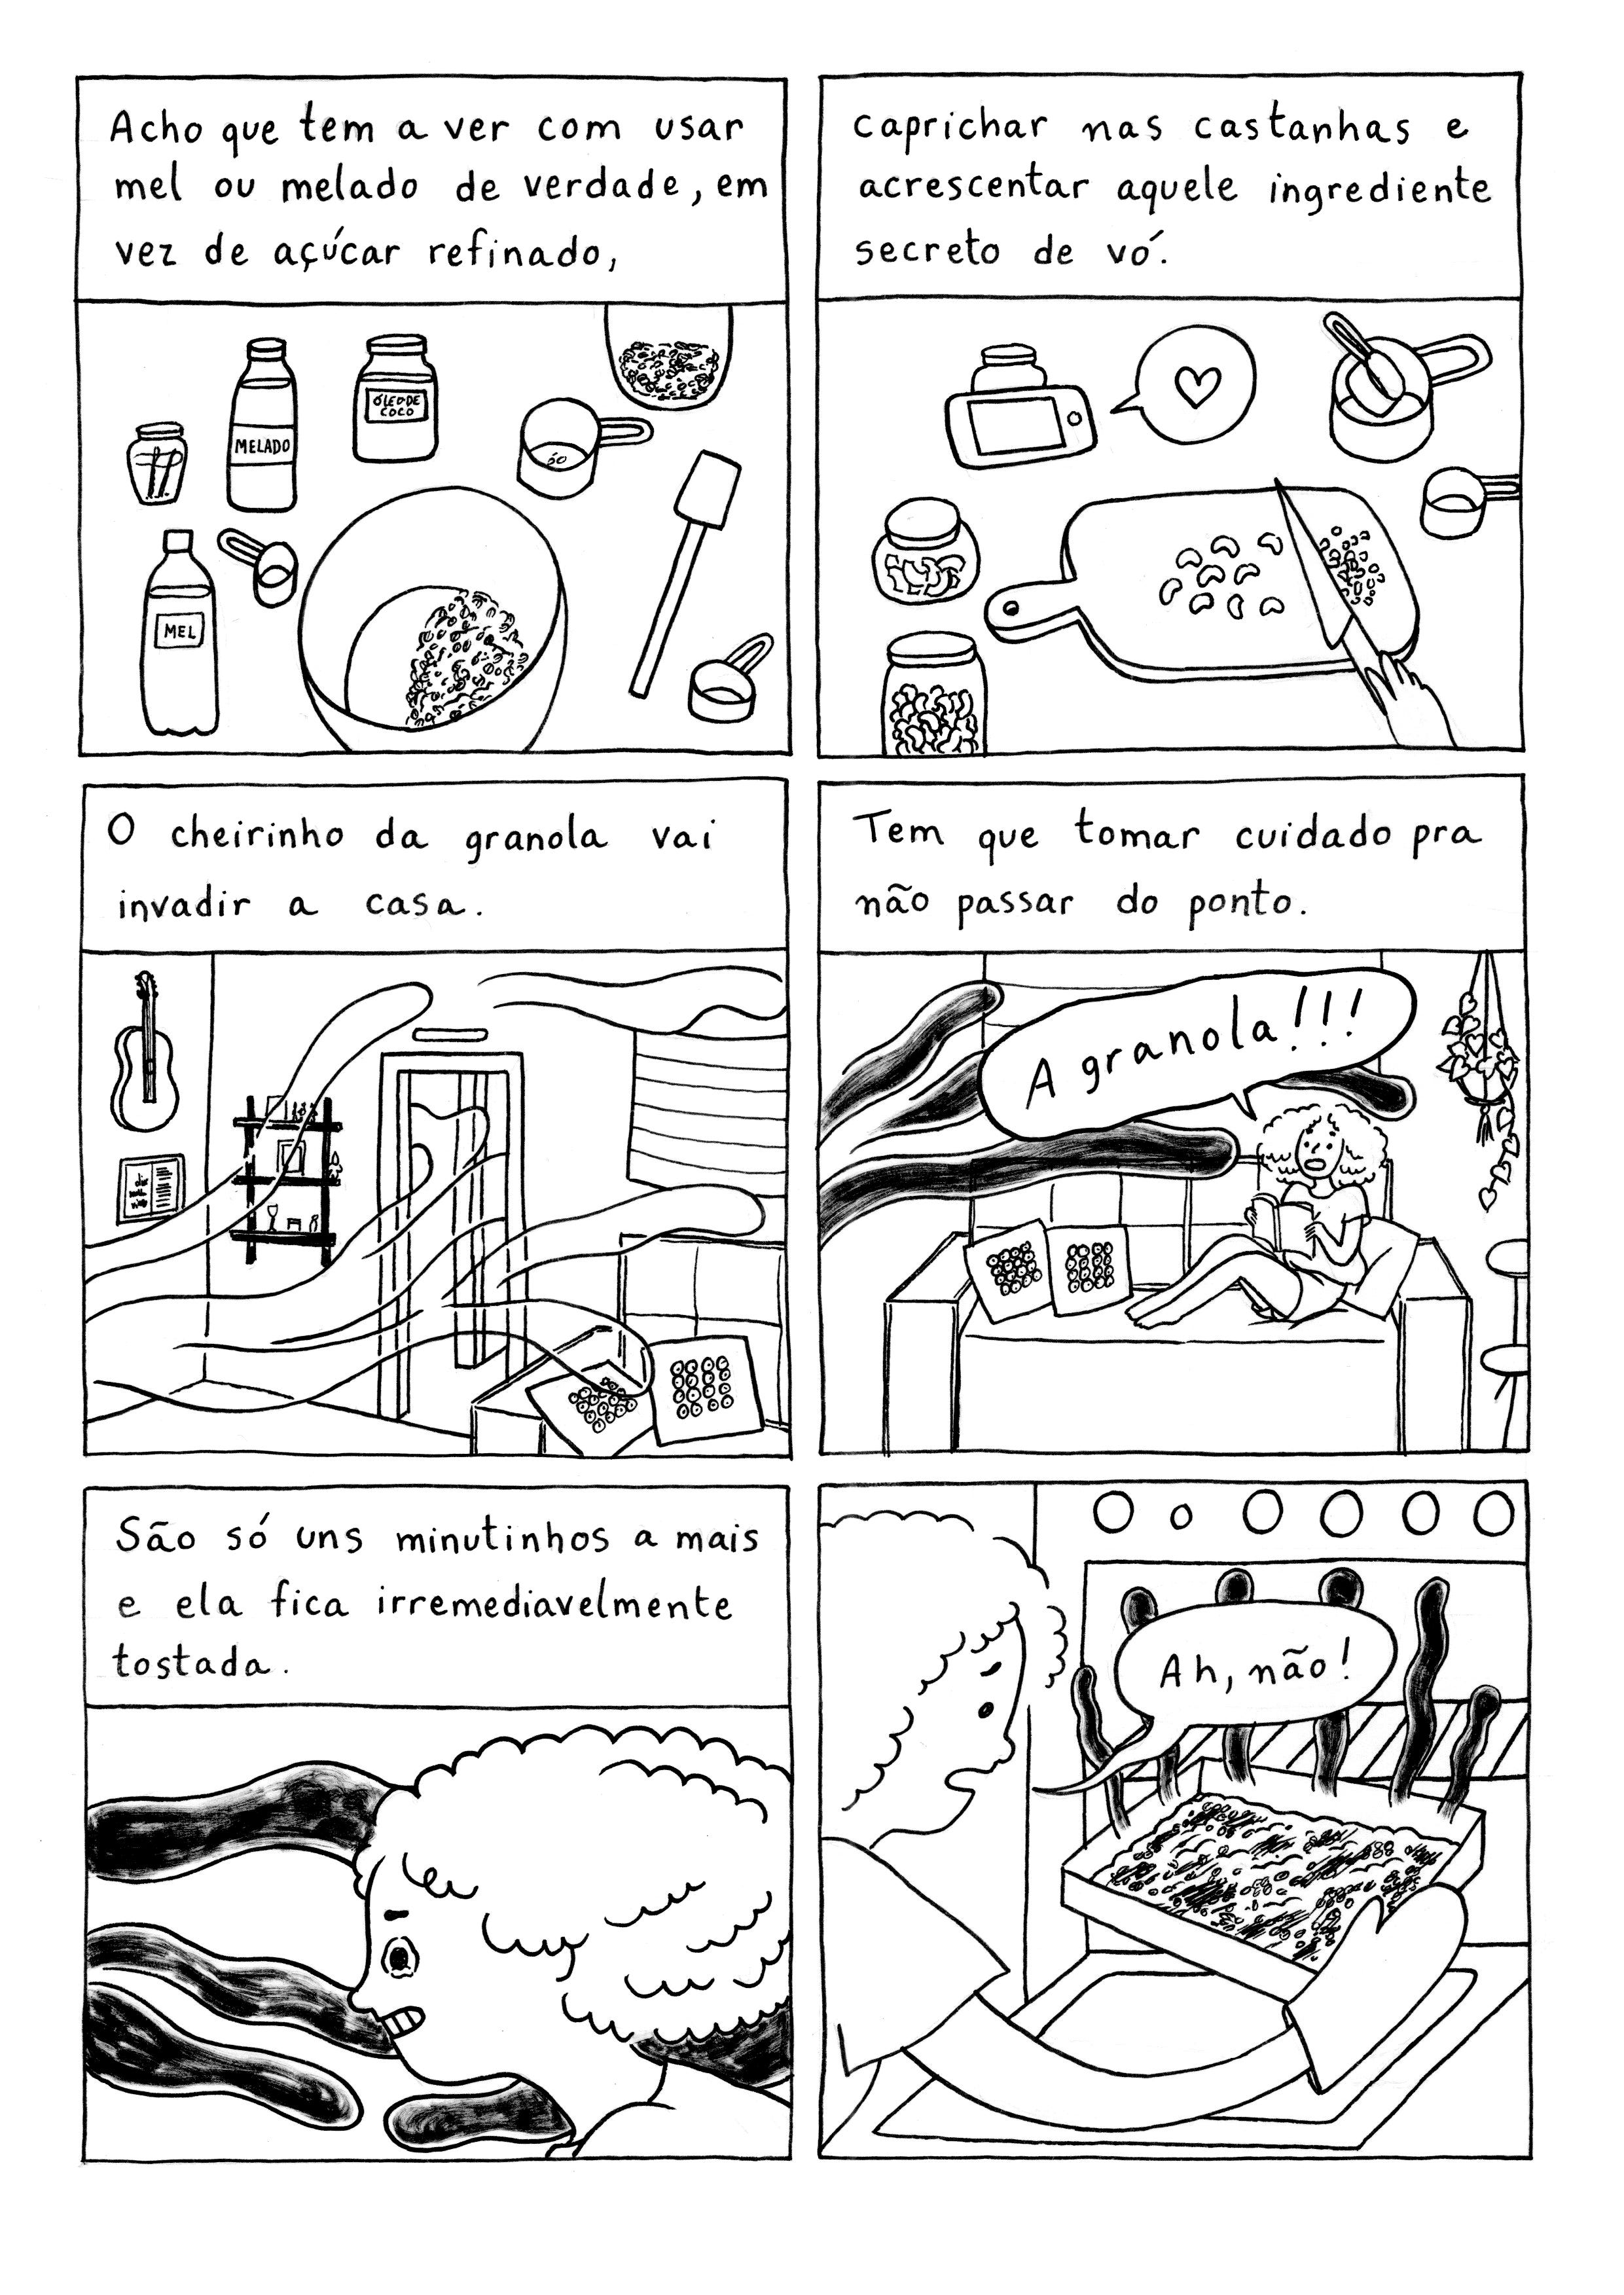 Acho que tem a ver com usar
mel ou melado de verdade, em
vez de açúcar refinado,
ÓLEO DE
COCO
MELADO
MEL
caprichar nas castanhas e
acrescentar aquele ingrediente
secreto de vó.
O cheirinho da granola vai
invadir a casa.
Tem que tomar cuidado pra
não passar do ponto.
A granola!!!
São só uns minutinhos a mais
e ela fica irremediavelmente
tostada.
Ah, não!